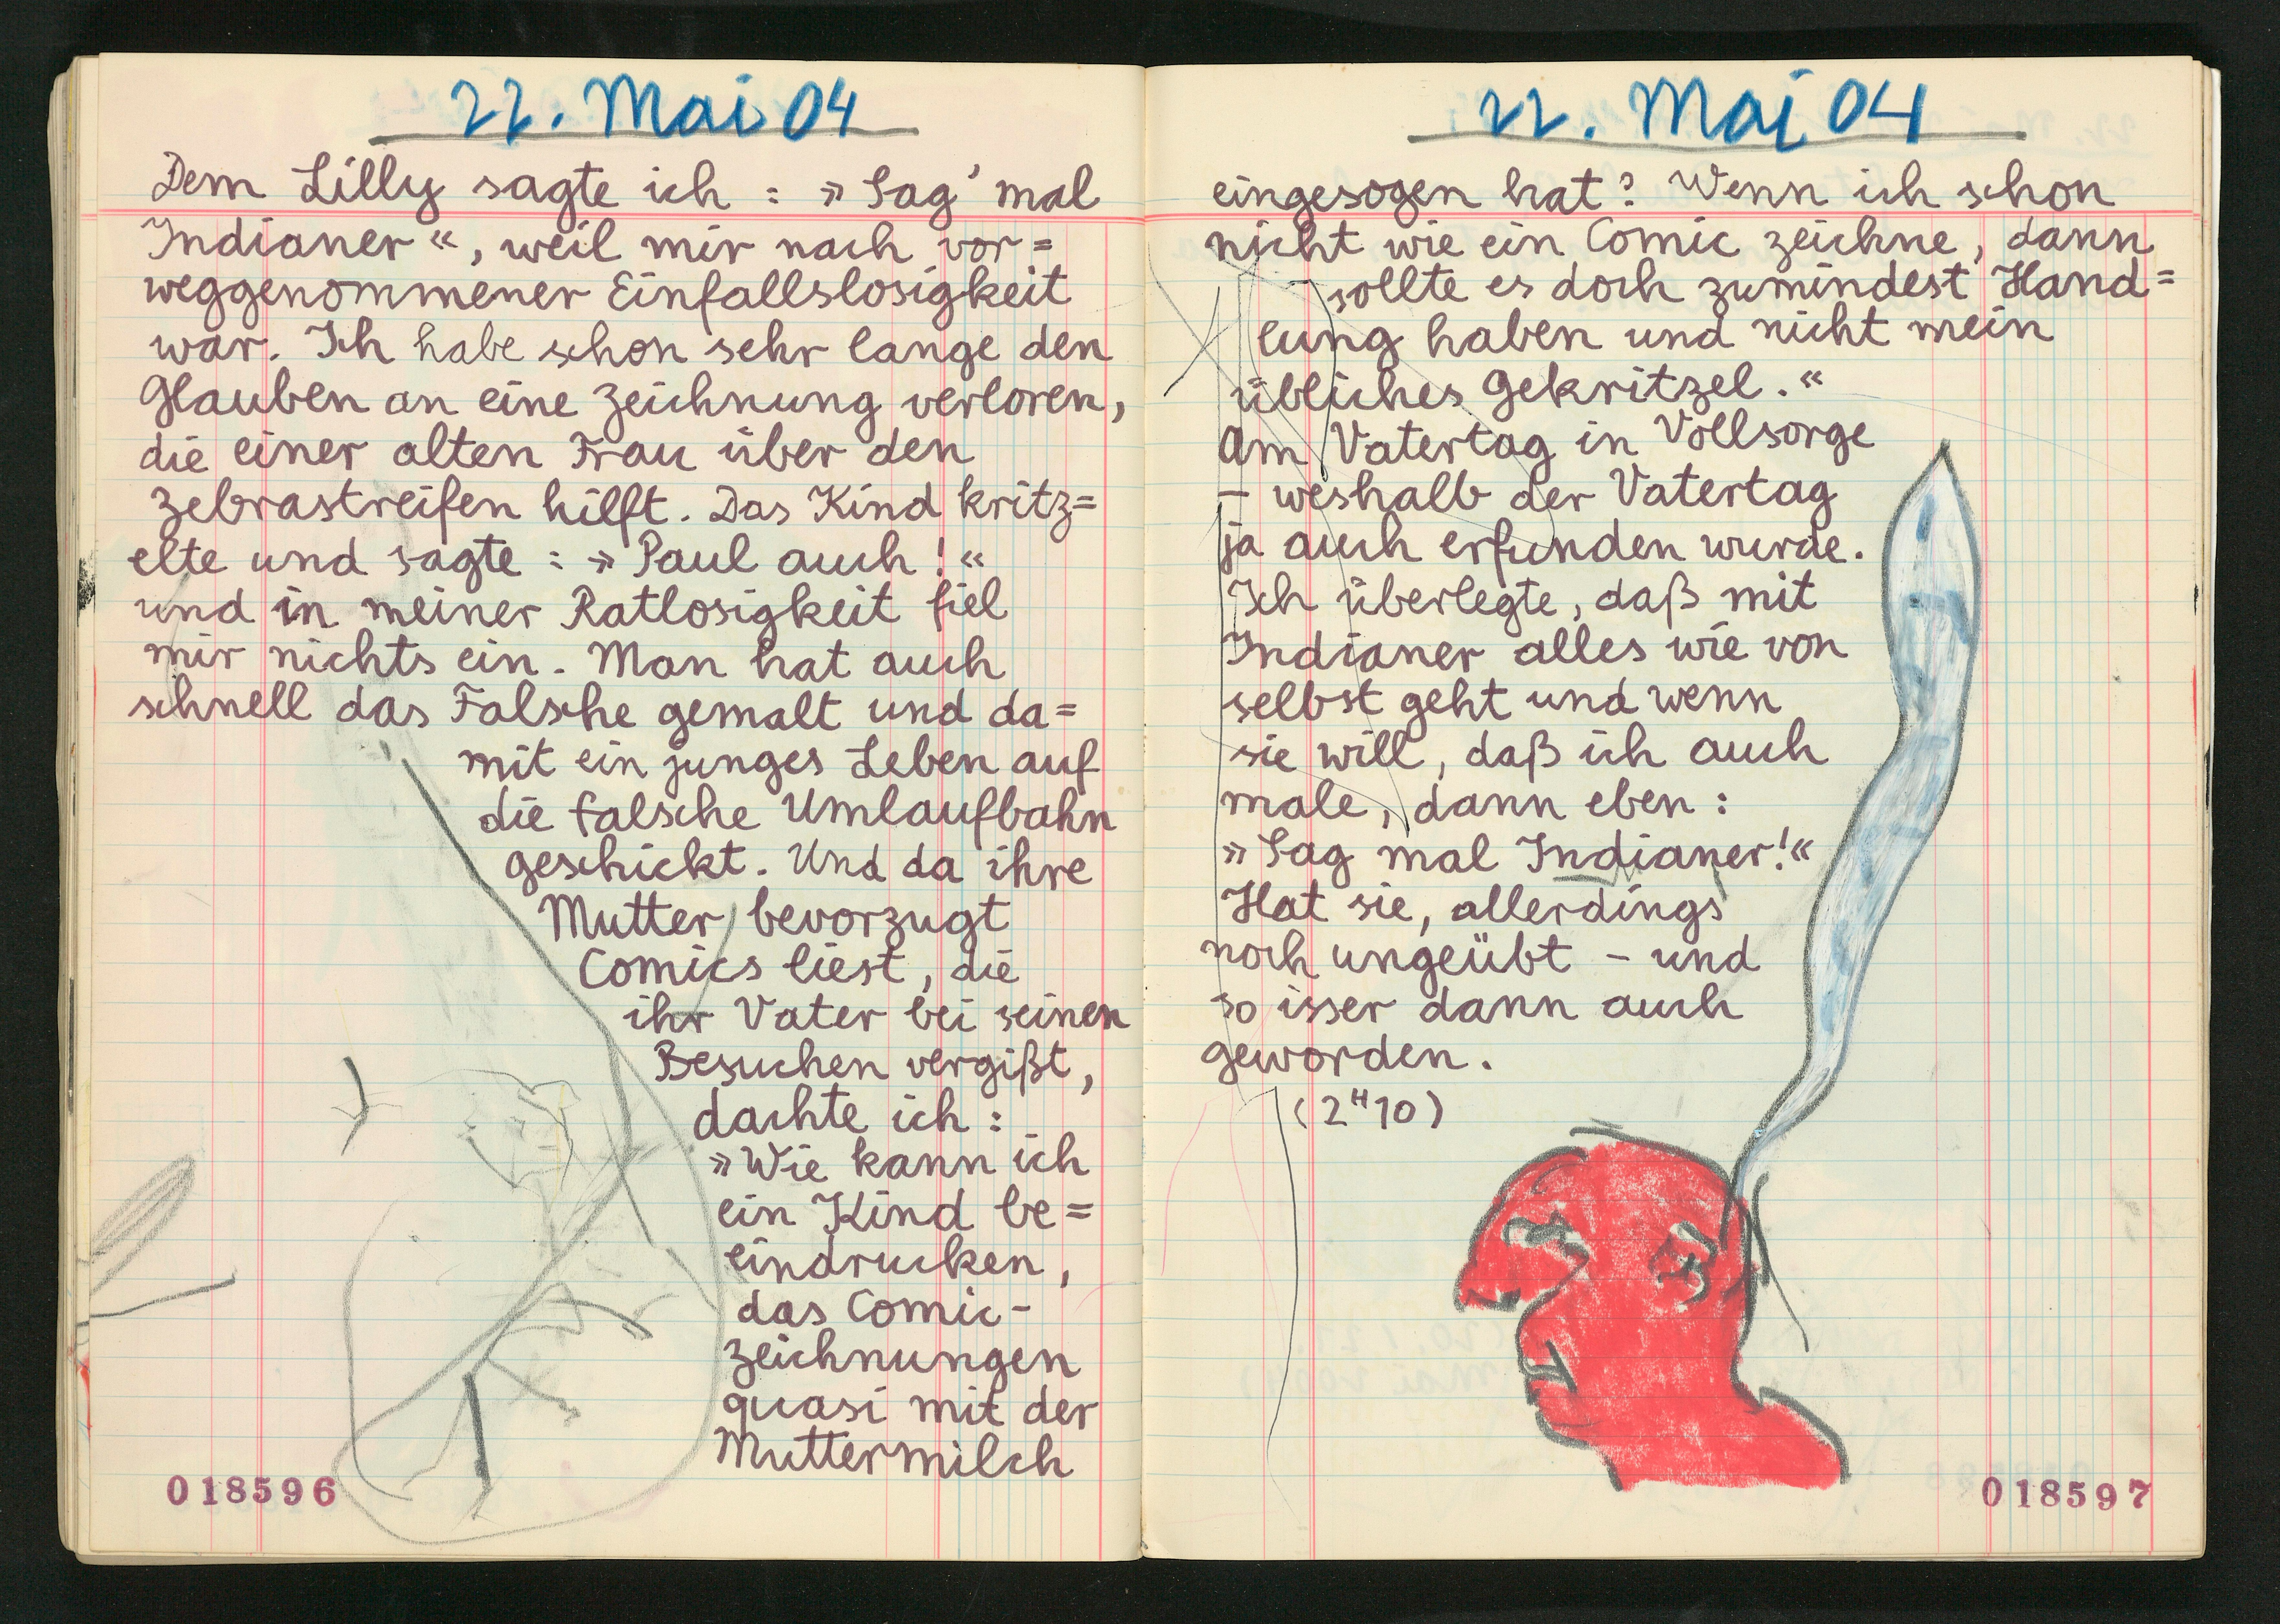 22. Mai 04
Dem Lilly sagte ich : »Sag' mal
Indianer«, weil mir nach vor=
weggenommener Einfallslosigkeit
war. Ich habe schon sehr lange den
Glauben an eine Zeichnung verloren,
die einer alten Frau über den
Zebrastreifen hilft. Das Kind kritz=
elte und sagte : »Paul auch!«
und in meiner Ratlosigkeit fiel
mir nichts ein. Man hat auch
schnell das Falsche gemalt und da=
mit ein junges Leben auf
die falsche Umlaufbahn
geschickt. Und da ihre
Mutter bevorzugt
Comics liest, die
ihr Vater bei seinen
Besuchen vergißt,
dachte ich :
»Wie kann ich
ein Kind be=
eindrucken,
das Comic-
zeichnungen
quasi mit der
Muttermilch
018596
22. Mai 04
eingesogen hat? Wenn ich schon
nicht wie ein Comic zeichne, dann
sollte es doch zumindest Hand=
lung haben und nicht mein
übliches Gekritzel.«
Am Vatertag in Vollsorge
– weshalb der Vatertag
ja auch erfunden wurde.
Ich überlegte, daß mit
Indianer alles wie von
selbst geht und wenn
sie will, daß ich auch
male, dann eben :
»Sag mal Indianer!«
Hat sie, allerdings
noch ungeübt – und
so isser dann auch
geworden.
(2ᴴ10)
018597